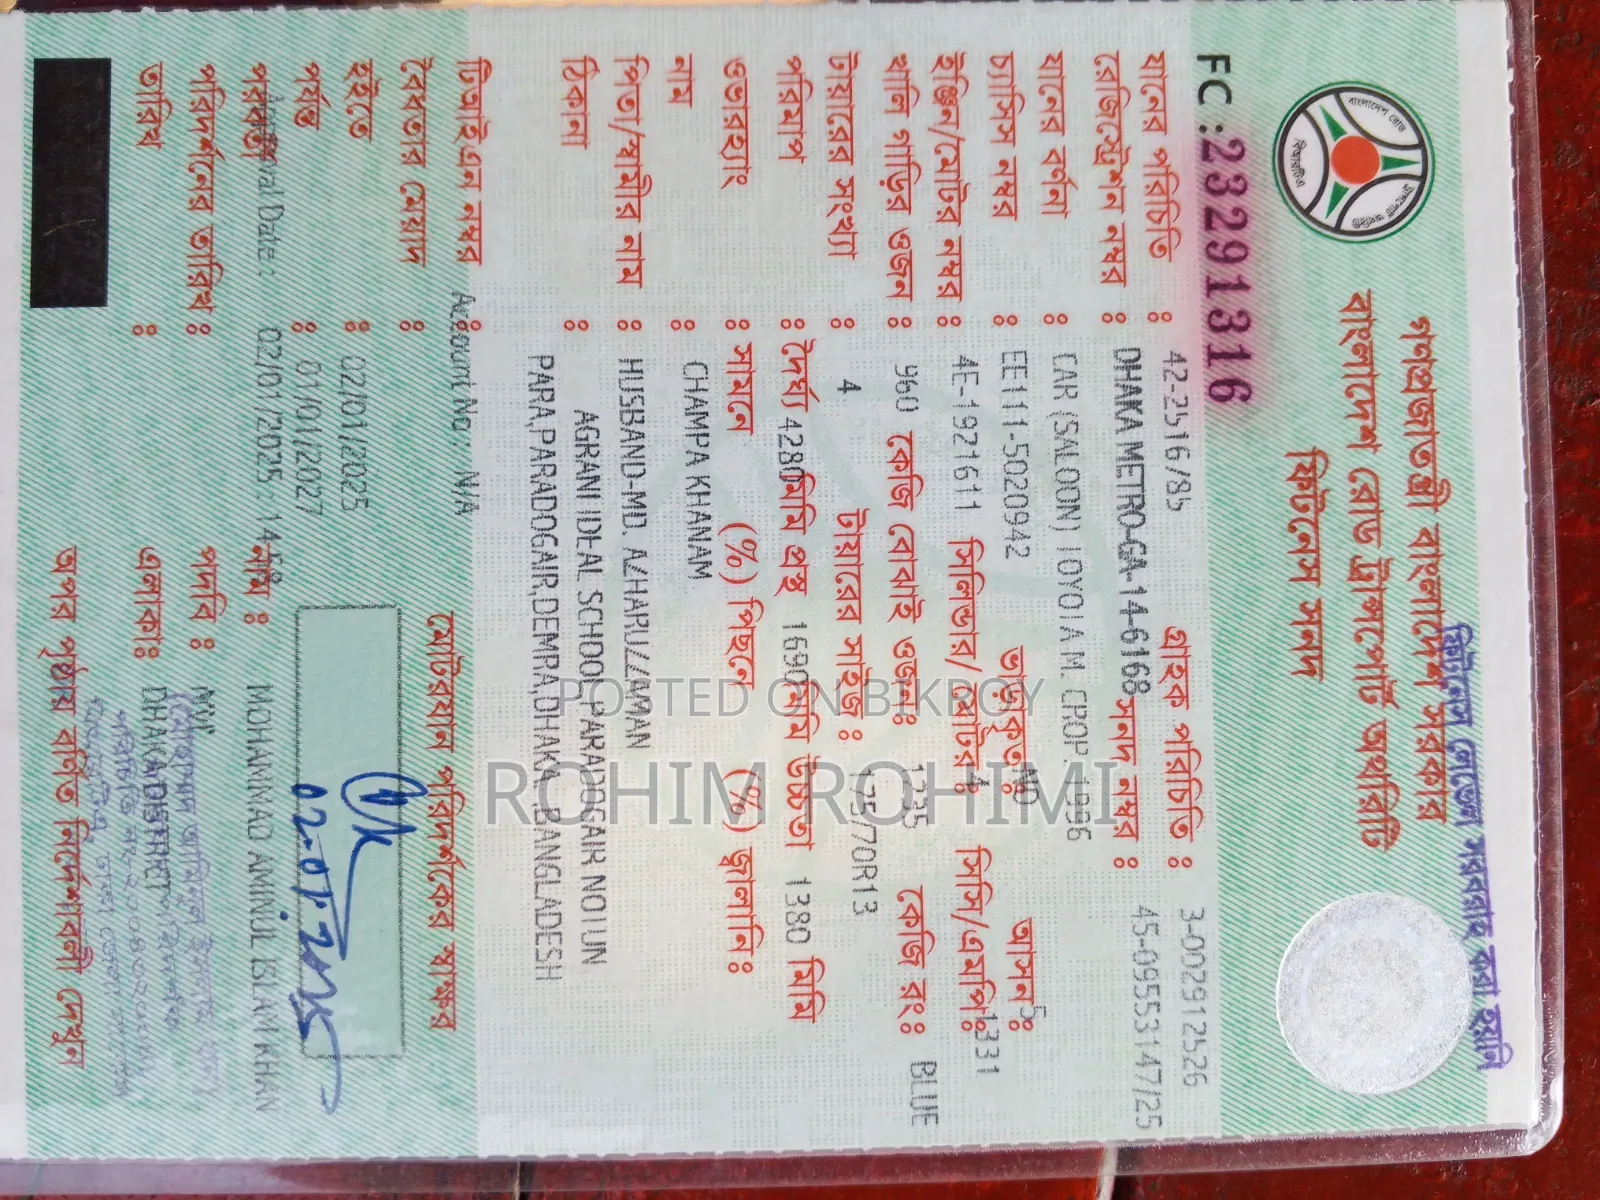 গণপ্রজাতন্ত্রী বাংলাদেশ সরকার
বাংলাদেশ রোড ট্রান্সপোর্ট অথরিটি
ফিটনেস সনদ
FC : 23291316
যানের পরিচিতি : 42-2516/85 গ্রাহক পরিচিতি : 3-002912526
রেজিস্ট্রেশন নম্বর : DHAKA METRO-GA-14-6168 সনদ নম্বর : 45-09553147/25
যানের বর্ণনা : CAR (SALOON) TOYOTA M. CROP. 1996
চ্যাসিস নম্বর : EE111-5020942 ভাড়াকৃত: NO আসন: 5
ইঞ্জিন/মোটর নম্বর : 4E-1921611 সিলিন্ডার/ মোটর: 4 সিসি/এমপি: 1331
খালি গাড়ির ওজন : 960 কেজি বোঝাই ওজন: 1235 কেজি রং: BLUE
টায়ারের সংখ্যা : 4 টায়ারের সাইজ : 175/70R13
পরিমাপ : দৈর্ঘ্য 4280 মিমি প্রস্থ 1690 মিমি উচ্চতা 1380 মিমি
ওভারহ্যাং : সামনে (%) পিছনে (%) জ্বালানি:
নাম : CHAMPA KHANAM
পিতা/স্বামীর নাম : HUSBAND-MD. AZHARUZZAMAN
ঠিকানা : AGRANI IDEAL SCHOOL,PARADOGAIR NOTUN
PARA,PARADOGAIR,DEMRA,DHAKA, BANGLADESH
টিআইএন নম্বর : Account No : N/A
বৈধতার মেয়াদ : মোটরযান পরিদর্শকের স্বাক্ষর
হইতে : 02/01/2025
পর্যন্ত : 01/01/2027
02-01-2025
পরবর্তী Arrival Date : 02/01/2025 14:58 নাম : MOHAMMAD AMINUL ISLAM KHAN
পরিদর্শনের তারিখ : পদবি : MVI
তারিখ : এলাকা: DHAKA DISTRICT
অপর পৃষ্ঠায় বর্ণিত নির্দেশাবলী দেখুন
POSTED ON BIKROY
ROHIM ROHIMI